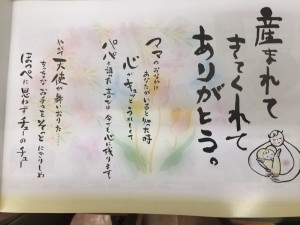 産まれて
きてくれて
ありがとう。
ママのおなかに
あなたがいると知った時
心がキュッと
パパと
今も心に残ります
やがて天使が舞いおりた
ちっちゃなお手々をそっとにぎりしめ
ほっぺに思わずチューのチュー